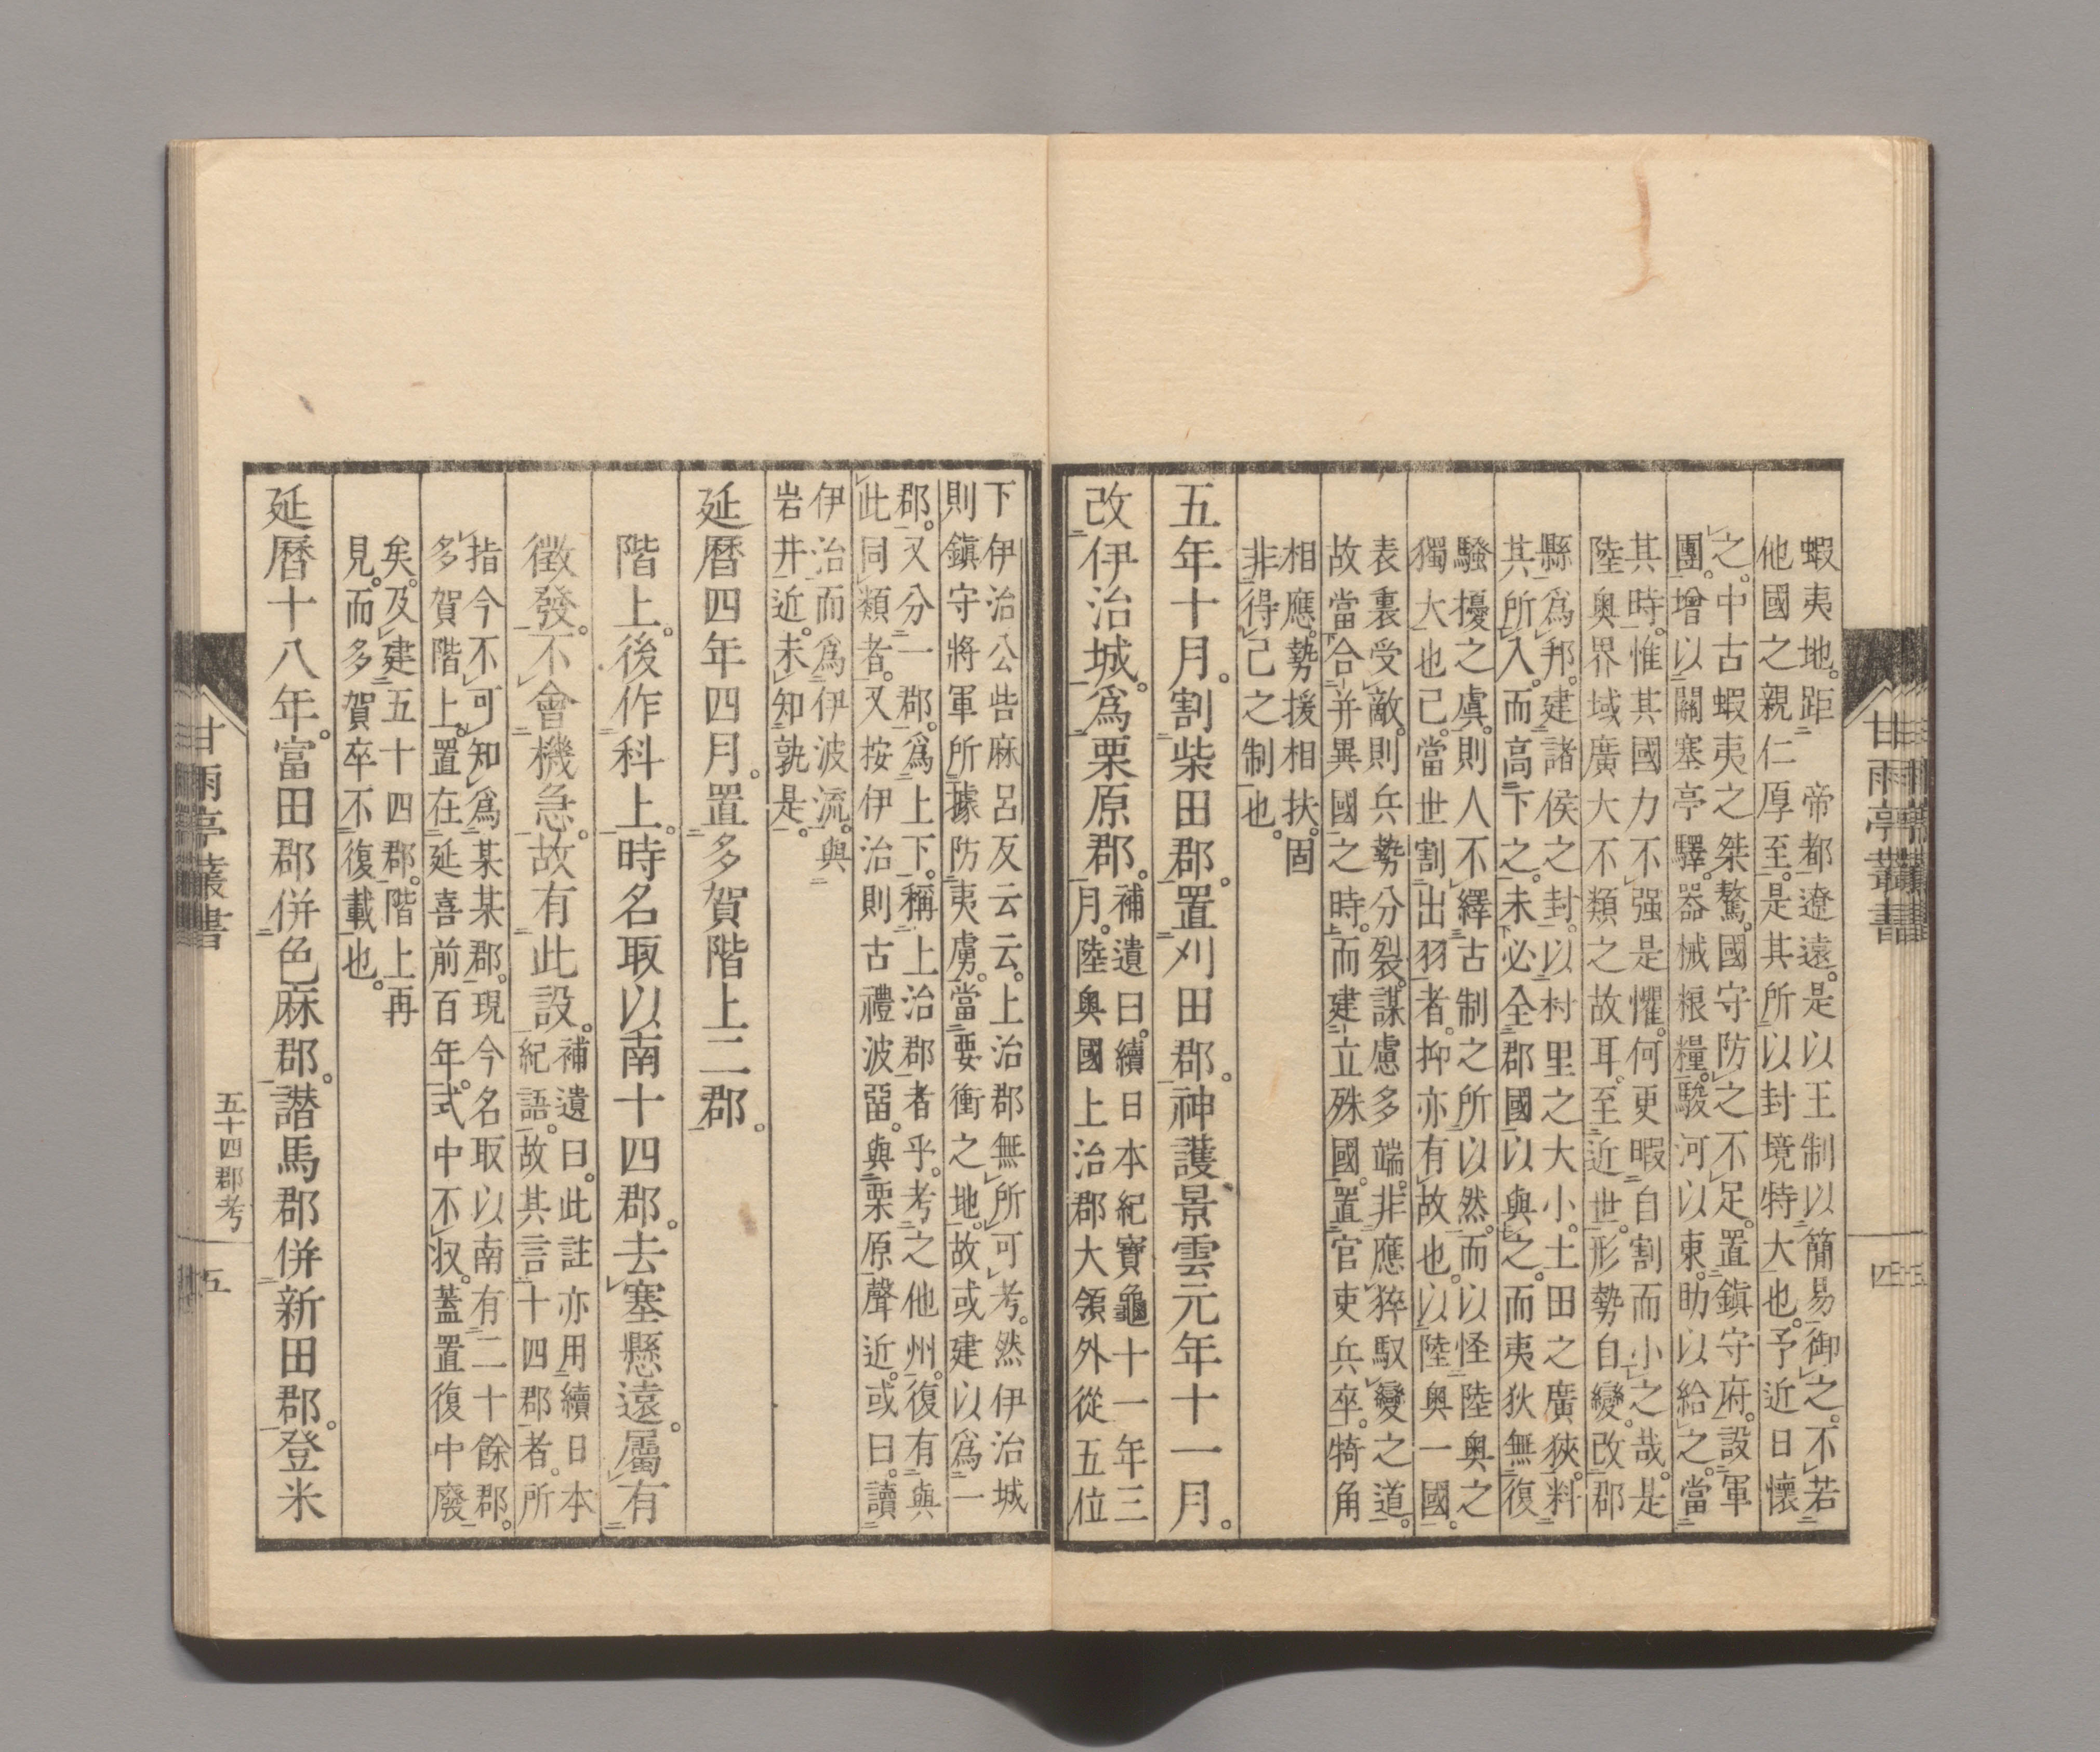 蝦夷地。距　帝都遼遠。是以王制以簡易御之。不若
他國之親仁厚至。是其所以封境特大也。予近日懷
之。中古蝦夷之桀驁。國守防之不足。置鎮守府。設軍
團。增以關塞亭驛。器械粮糧。駿河以東。助以給之。當
其時。惟其國力不强是懼。何更暇自割而小之哉。是
陸奥界域廣大不類之故耳。至近世。形勢自變。改郡
縣爲邦。建諸侯之封。以村里之大小。土田之廣狹。料
其所入。而高下之。未必全郡國以與之。而夷狄無復
騷擾之虞。則人不繹古制之所以然。而以怪陸奥之
獨大也已。當世割出羽者。抑亦有故也。以陸奥一國。
表裏受敵。則兵勢分裂。謀慮多端。非應猝馭變之道。
故當合并異國之時。而建立殊國。置官吏兵卒。犄角
相應。勢援相扶。固
非得已之制也。
五年十月。割柴田郡。置刈田郡。神護景雲元年十一月。
改伊治城。爲栗原郡。
補遺曰。續日本紀寶龜十一年三
月。陸奥國上治郡大領外從五位
下伊治公呰麻呂反云云。上治郡無所可考。然伊治城
則鎮守將軍所據防夷虜。當要衝之地。故或建以爲一
郡。又分一郡。爲上下。稱上治郡者乎。考之他州。復有與
此同類者。又按伊治則古禮波畱。與栗原聲近。或曰。讀
伊治而爲伊波流。與
岩井近。未知孰是。
延曆四年四月。置多賀階上二郡。
階上。後作科上。時名取以南十四郡。去塞懸遠。屬有
徵發。不會機急。故有此設。
補遺曰。此註亦用續日本
紀語。故其言十四郡者。所
指今不可知爲某某郡。現今名取以南有二十餘郡。
多賀階上。置在延喜前百年。式中不収。蓋置復中廢
矣。及建五十四郡。階上再
見。而多賀卒不復載也。
延曆十八年。富田郡併色麻郡。讃馬郡併新田郡。登米
甘雨亭叢書
四
甘雨亭叢書
五十四郡考
五